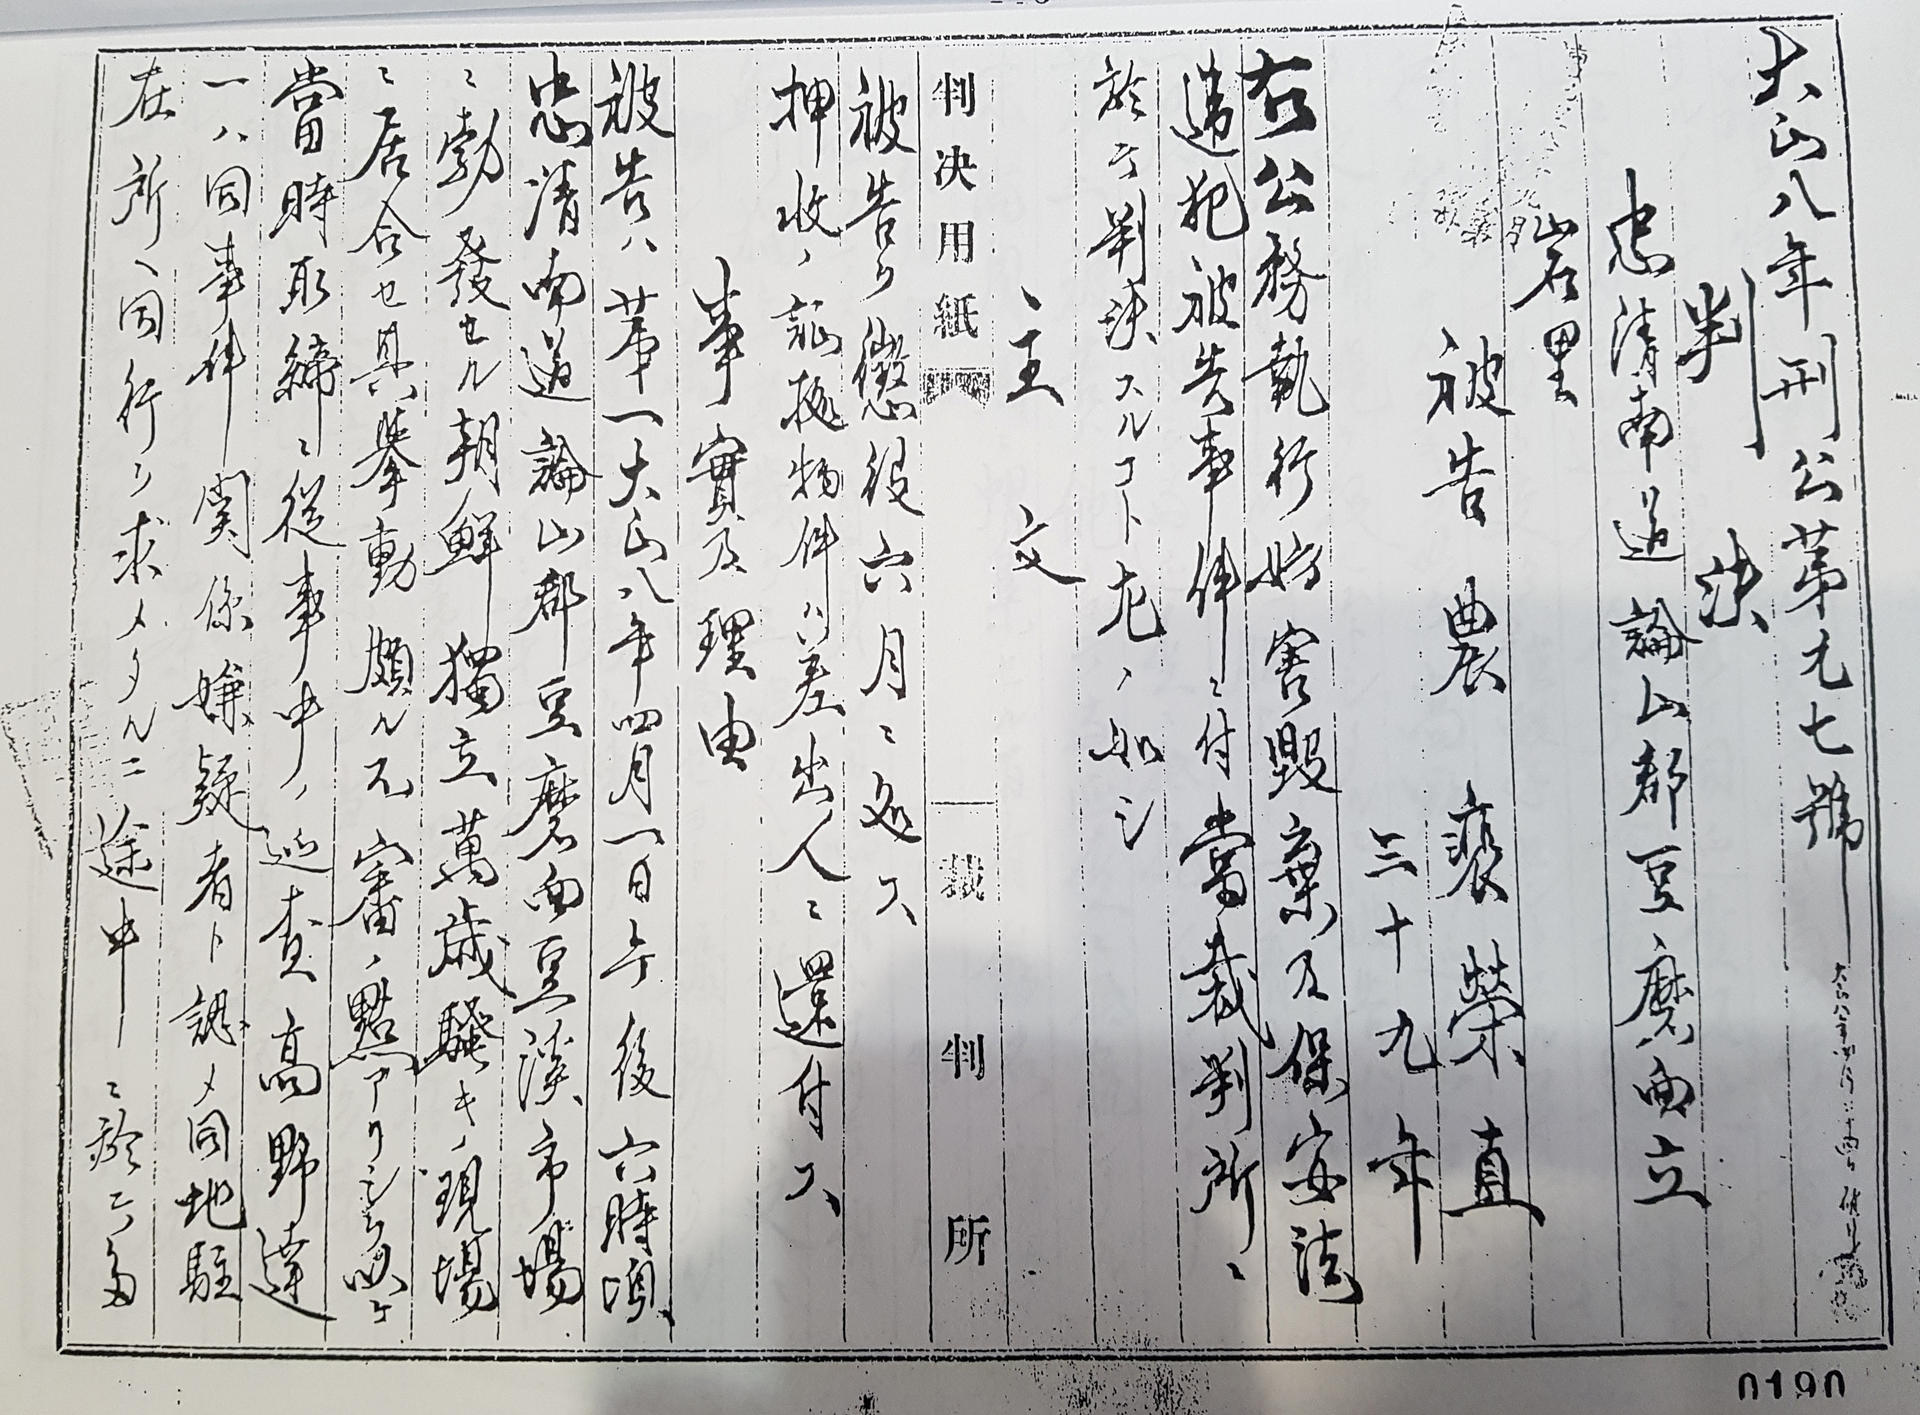 大正八年刑公第九七號
判決
忠清南道論山郡豆磨面立
岩里
被告 農 裵榮直
三十九年
右公務執行妨害毀棄及保安法
違犯被告事件ニ付當裁判所ニ
於テ判決スルコト左ノ如シ
主文
判決用紙 裁判所
被告ヲ懲役六月ニ処ス
押收ノ証拠物件ハ差出人ニ還付ス
事實及理由
被告ハ第一大正八年四月一日午後六時頃
忠清南道論山郡豆磨面豆溪市場
ニ勃發セル朝鮮獨立萬歳騒キノ現場
ニ居合セ具擧動頗ル不審ノ點アリシヲ以テ
當時取締ニ從事中ノ巡査高野達
一ハ同事件関係嫌疑者ト認メ同地駐
在所ヘ同行ヲ求メタルニ途中ニ於テ
0190